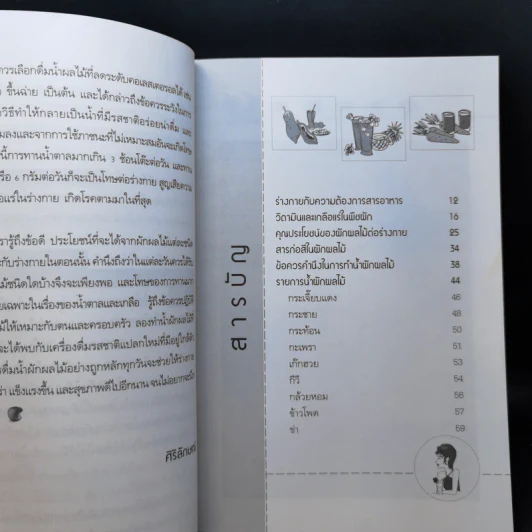 ควรเลือกดื่มน้ำผลไม้ที่ลดระดับคอเลสเตอรอลได้ เช่น
ขึ้นฉ่าย เป็นต้น และได้กล่าวถึงข้อควรระวังในการ
วิธีทำให้กลายเป็นน้ำที่มีรสชาติอร่อยน่าดื่ม และ
ลงและจากการใช้ภาชนะที่ไม่เหมาะสมอันจะเกิดโทษ
นี้การทานน้ำตาลมากเกิน 3 ช้อนโต๊ะต่อวัน และทาน
รือ 6 กรัมต่อวันก็จะเป็นโทษต่อร่างกาย สูญเสียความ
แร่ในร่างกาย เกิดโรคตามมาในที่สุด
รารู้ถึงข้อดี ประโยชน์ที่จะได้จากผักผลไม้แต่ละชนิด
กับร่างกายในตอนนั้น คำนึงถึงว่าในแต่ละวันควรได้รับ
ไม้ชนิดใดบ้างจึงจะเพียงพอ และโทษของการทานมาก
ยเฉพาะในเรื่องของน้ำตาลและเกลือ รู้ถึงข้อควรปฏิบัติ
ไม้ให้เหมาะกับตนและครอบครัว ลองทำน้ำผักผลไม้
จะได้พบกับเครื่องดื่มรสชาติแปลกใหม่ที่มีอยู่ใกล้ตัว
ดื่มน้ำผักผลไม้อย่างถูกหลักทุกวันจะช่วยให้ร่างกาย
่า แข็งแรงขึ้น และสุขภาพดีไปอีกนาน จนไม่อยากจะ
ศิริลักษณ์
สารบัญ
ร่างกายกับความต้องการสารอาหาร 12
วิตามินและเกลือแร่ในพืชผัก 16
คุณประโยชน์ของผักผลไม้ต่อร่างกาย 25
สารก่อสีในผักผลไม้ 34
ข้อควรคำนึงในการทำน้ำผักผลไม้ 38
รายการน้ำผักผลไม้ 44
กระเจี๊ยบแดง 46
กระชาย 48
กระท้อน 50
กะเพรา 51
เก๊กฮวย 53
กีวี 54
กล้วยหอม 56
ข้าวโพด 57
ขา 59